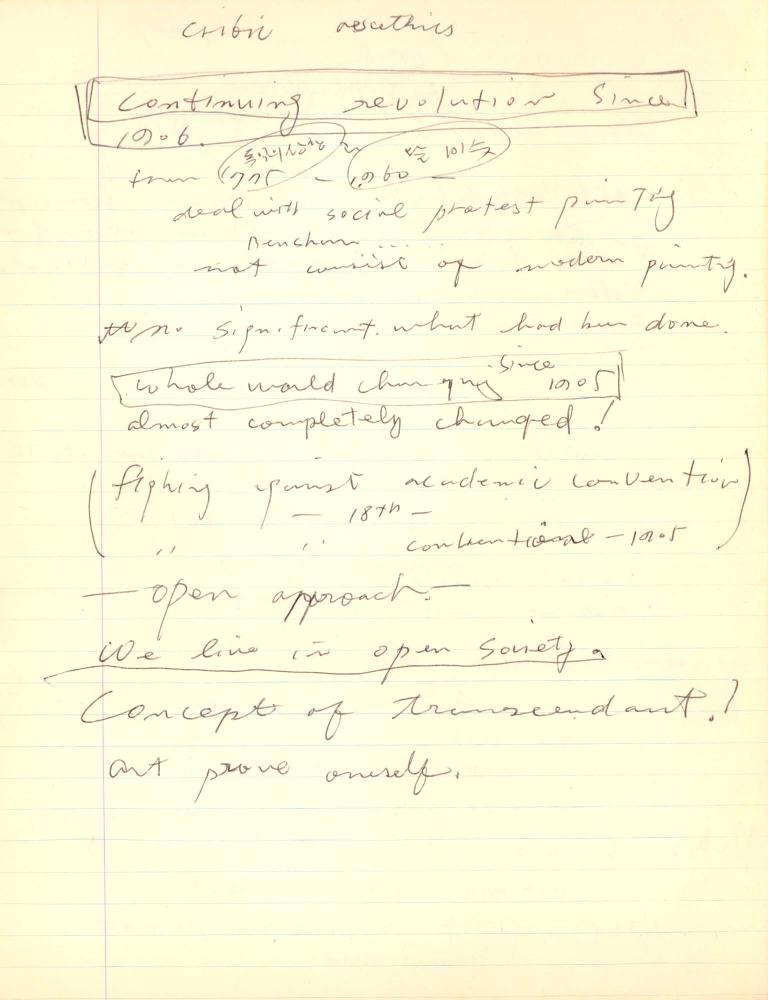 Critic aescethics
Continuing revolution Since
1906.
from 1775 — 1960 —
deal with social protest painting
not consist of modern painting.
no significant. what had been done.
whole world changing since 1905
almost completely changed!
(fighing against academic convention
— 18th —
〃 〃 conventional — 1905)
— open approach. —
We live in open society.
Concept of transcendant.!
art prove oneself.